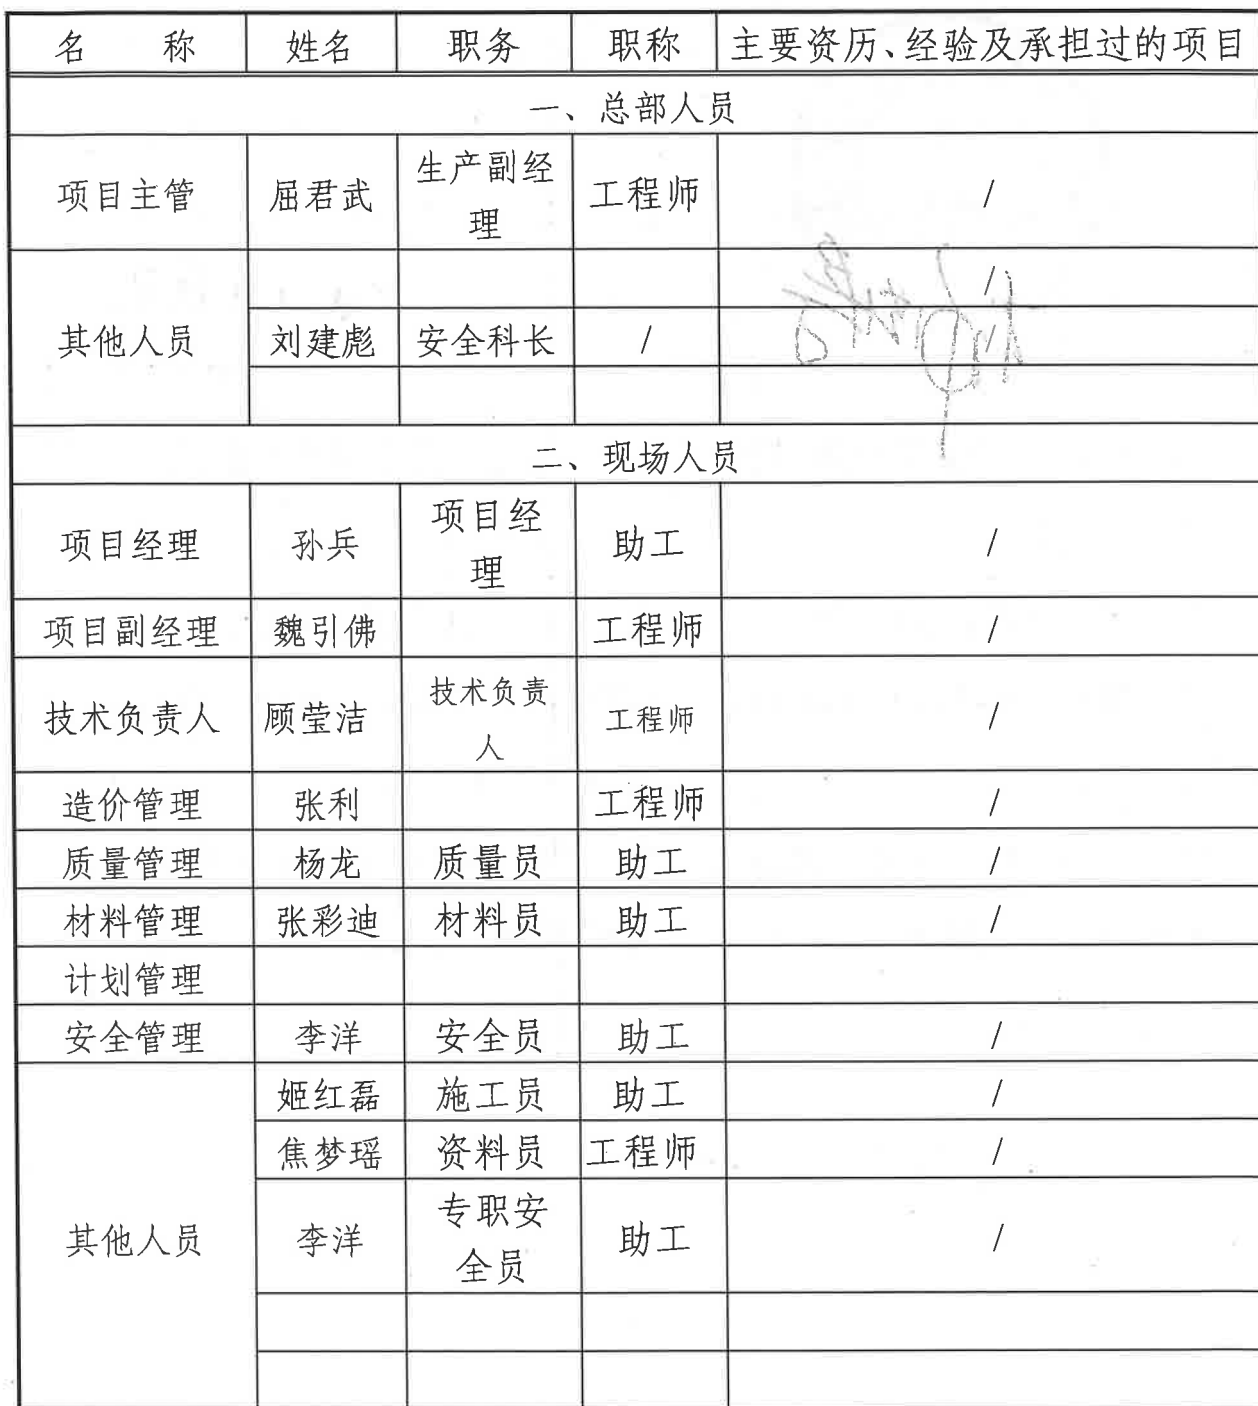 名 称 姓名 职务 职称 主要资历、经验及承担过的项目
一、总部人员
项目主管 屈君武 生产副经理 工程师 /
其他人员
/
刘建彪 安全科长 / /
二、现场人员
项目经理 孙兵 项目经理 助工 /
项目副经理 魏引佛 工程师 /
技术负责人 顾莹洁 技术负责人 工程师 /
造价管理 张利 工程师 /
质量管理 杨龙 质量员 助工 /
材料管理 张彩迪 材料员 助工 /
计划管理
安全管理 李洋 安全员 助工 /
其他人员
姬红磊 施工员 助工 /
焦梦瑶 资料员 工程师 /
李洋 专职安全员 助工 /